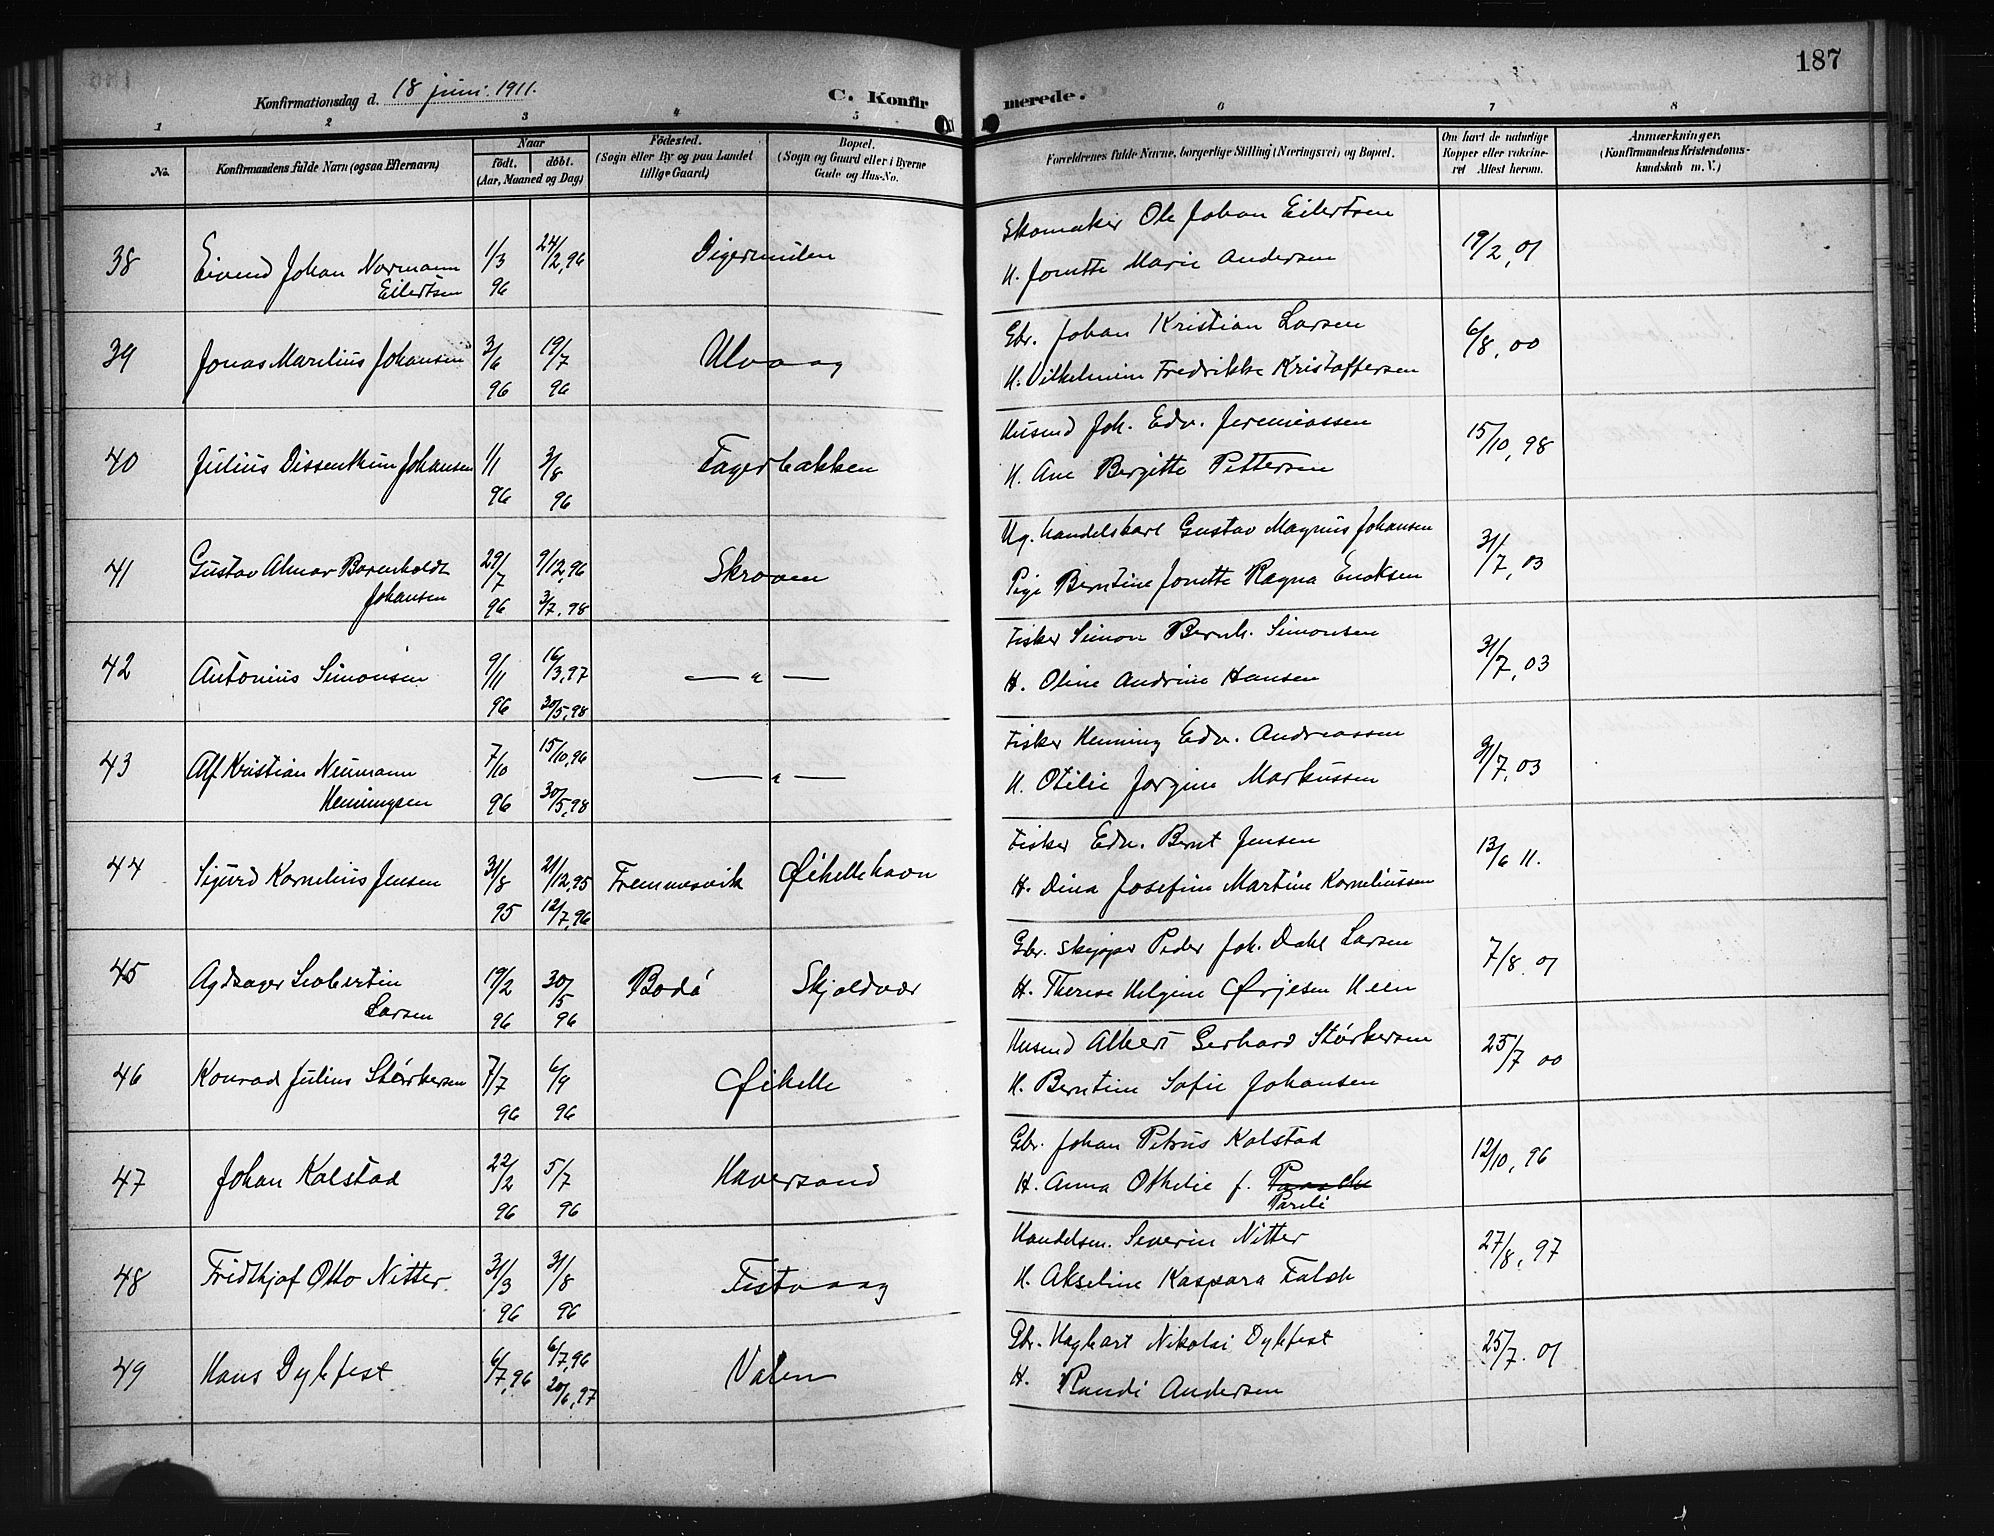 187
Konfirmationsdag d. 18 juni 1911.
C. Konfirmerede.
1 2 3 4 5 6 7 8
No.
Konfirmandens fulde Navn (ogsaa Efternavn)
Naar
født. døbt.
(Aar, Maaned og Dag)
Fødested.
(Sogn eller By og paa Landet
tillige Gaard)
Bopæl.
(Sogn og Gaard eller i Byerne
Gade og Hus-No.
Forældrenes fulde Navne, borgerlige Stilling (Næringsvei) og Bopæl.
Om havt de naturlige
Kopper eller vakcine-
ret Attest herom.
Anmærkninger.
(Konfirmandens Kristendoms-
kundskab m. V.)
38 Eivind Johan Normann Eilertsen 1/3 96 24/2, 96 Digermulen
Skomaker Ole Johan Eilertsen 19/2, 01
H. Jonette Marie Andersen
39 Jonas Marelius Johansen 3/6 96 19/7 96 Ulvaag
Gbr. Johan Kristian Larsen 6/8, 00
H. Vilhelmine Fredrikke Kristoffersen
40 Julius Dissenthun Johansen 1/1 96 3/8 96 Fagerbakken
Husmd Joh. Edv. Jeremiassen 15/10, 98
H. Ane Bergitte Pettersen
41 Gustav Almar Barenholdt Johansen 29/7 96 9/12, 96 3/7, 98 Skroven
Ug. Handelskarl Gustav Magnus Johansen 31/7, 03
Pige Berntine Jonette Ragna Enoksen
42 Antonius Simonsen 9/11 96 16/3, 97 30/5, 98 — " —
Fisker Simon Bernh. Simonsen 31/7, 03
H. Oline Andrine Hansen
43 Alf Kristian Neumann Henningsen 7/10 96 15/10, 96 30/5, 98 — " —
Fisker Henning Edv. Andreassen 31/7, 03
H. Otilie Jorgine Markussen
44 Sigurd Kornelius Jensen 31/8 95 21/12, 95 12/7, 96 Fremmesvik Øihellehavn
Fisker Edv. Bernt Jensen 13/6 11.
H. Dina Josefine Martine Korneliussen
45 Larsen 19/2 96 30/5 96 Bodø Skjoldvær
Gbr. skipper Peder Joh. Dahl Larsen 7/8 01
H. Therese Helgine Ørjesen Heen
46 Konrad Julius Størkersen 7/7 96 6/9 96 Øihelle
Husmd Albert Gerhard Størkersen 25/7 00
H. Berntine Sofie Johansen
47 Johan Kalstad 22/2 96 5/7 96 Haversand
Gbr. Johan Petrus Kalstad 12/10, 96
H. Anna Othilie f. Pareli
48 Fridthjof Otto Nitter 31/3 96 31/8 96 Tistvaag
Handelsm. Severin Nitter 27/8, 97
H. Akseline Kaspara Falch
49 Hans Dybfest 6/7, 96 6/7, 96 20/6, 97 Valen
Gbr. Hagbart Nikolai Dybfest 25/7. 01
H. Randi Andersen